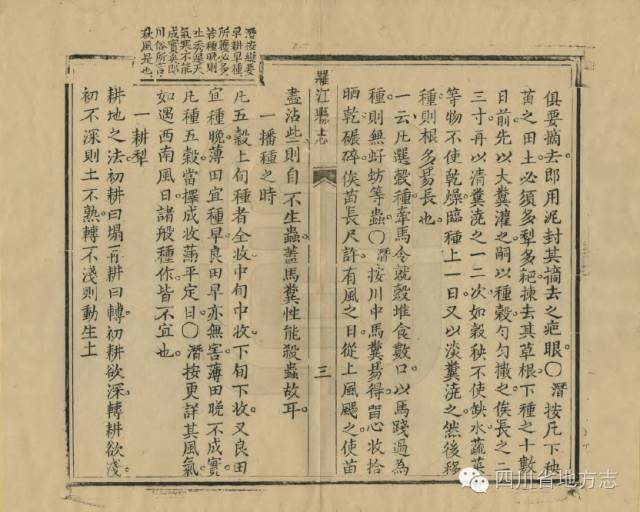 俱要摘去郎用泥封其摘去之疤眼〇潛按凡下秧
苗之田土必須多犁多耙揀去其草根下種之十數
日前先以大糞灌之嗣以種穀勺勺撒之俟長之二
三寸再以清糞澆之一二次如穀秧不使缺水蔬菜
等物不使乾燥臨種上一日又以淡糞澆之然後移
種則根多易長也
一云凡選穀種牽馬令就穀堆食數口以馬踐過為
種則無蚄等蟲〇潛按川中馬糞易得留心收拾
晒乾碾碎俟苗長尺許有風之日從上風颺之使苗
羅江縣志
三
盡沾些則自不生蟲蓋馬糞性能殺蟲故耳
一播種之時
凡五穀上旬種者全收中旬中收下旬下收又良田
宜種晚薄田宜種早良田早亦無害薄田晚不成實
凡種五穀當擇成收滿平定日〇潛按更詳其風氣
如遇西南風日諸般種作皆不宜也
一耕犁
耕地之法初耕曰塌再耕曰轉初耕欲深轉耕欲淺
初不深則土不熟轉不淺則動生土
潛按總要
早耕早種
所獲必多
若種晚則
北秀
氣寒不能
成實矣郎
川俗所言
秋風是也
四川省地方志